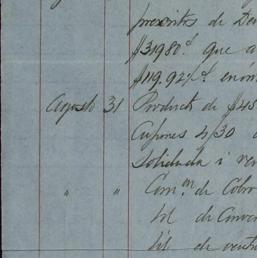 prescritos de Deu
$3,980.- que a
$119.92/cs. en ón
Agosto 31 Producto de $45
Cupones 4/30 d
Solidada i ven
" " Com.ⁿ de Cobro
Id. de Conver
Id. de venta